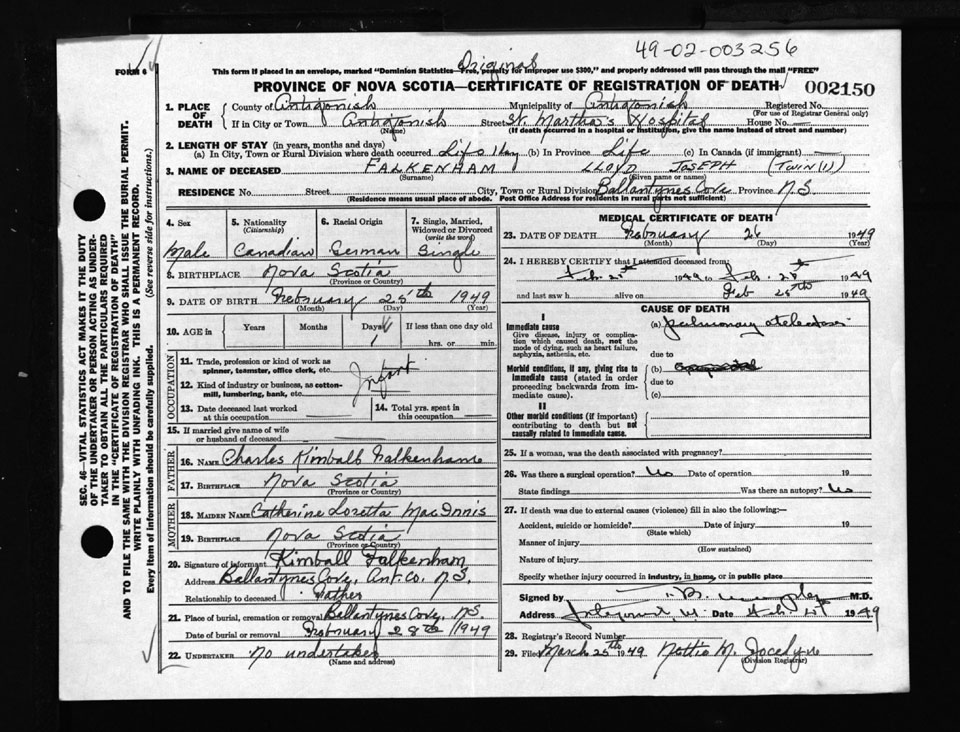 49-02-003256
Original
FORM 6
This form if placed in an envelope, marked "Dominion Statistics—Free, penalty for improper use $300," and properly addressed will pass through the mail "FREE"
PROVINCE OF NOVA SCOTIA—CERTIFICATE OF REGISTRATION OF DEATH 002150
1. PLACE OF DEATH County of Antigonish Municipality of Antigonish Registered No.
(For use of Registrar General only)
If in City or Town Antigonish Street St. Martha's Hospital House No. —
(Name) (If death occurred in a hospital or institution, give the name instead of street and number)
2. LENGTH OF STAY (in years, months and days)
(a) In City, Town or Rural Division where death occurred Life 1 day (b) In Province Life (c) In Canada (if immigrant) —
3. NAME OF DECEASED FALKENHAM LLOYD JOSEPH (TWIN (1))
(Surname) (Given name or names)
RESIDENCE No. Street City, Town or Rural Division Ballantynes Cove Province N.S.
(Residence means usual place of abode. Post Office Address for residents in rural parts not sufficient)
4. Sex 5. Nationality (Citizenship) 6. Racial Origin 7. Single, Married, Widowed or Divorced (write the word)
Male Canadian German Single
8. BIRTHPLACE Nova Scotia
(Province or Country)
9. DATE OF BIRTH February 25th 1949
(Month) (Day) (Year)
10. AGE in Years Months Days If less than one day old
1 hrs. or min.
OCCUPATION
11. Trade, profession or kind of work as spinner, teamster, office clerk, etc.
Infant
12. Kind of industry or business, as cotton-mill, lumbering, bank, etc.
13. Date deceased last worked at this occupation 14. Total yrs. spent in this occupation
15. If married give name of wife or husband of deceased
FATHER
16. NAME Charles Kimball Falkenhame
17. BIRTHPLACE Nova Scotia
(Province or Country)
MOTHER
18. MAIDEN NAME Catherine Loretta MacInnis
19. BIRTHPLACE Nova Scotia
(Province or Country)
20. Signature of informant Kimball Falkenham
Address Ballantynes Cove, Ant. Co. N.S.
Relationship to deceased Father
21. Place of burial, cremation or removal Ballantynes Cove, N.S.
Date of burial or removal February 28th 1949
22. UNDERTAKER No undertaker
(Name and address)
MEDICAL CERTIFICATE OF DEATH
23. DATE OF DEATH February 26 1949
(Month) (Day) (Year)
24. I HEREBY CERTIFY that I attended deceased from:
Feb. 25th 1949 to Feb. 25th 1949
and last saw h alive on Feb 25th 1949
CAUSE OF DEATH
I
Immediate cause
Give disease, injury or complication which caused death, not the mode of dying, such as heart failure, asphyxia, asthenia, etc.
(a) pulmonary atelectasis
due to
Morbid conditions, if any, giving rise to immediate cause (stated in order proceeding backwards from immediate cause).
(b)
due to
(c)
II
Other morbid conditions (if important) contributing to death but not causally related to immediate cause.
25. If a woman, was the death associated with pregnancy?
26. Was there a surgical operation? No Date of operation 19
State findings Was there an autopsy? No
27. If death was due to external causes (violence) fill in also the following:—
Accident, suicide or homicide? Date of injury 19
(State which)
Manner of injury
(How sustained)
Nature of injury
Specify whether injury occurred in industry, in home, or in public place
Signed by M.D.
Address Date 1949
28. Registrar's Record Number
29. Filed March 25th 1949 Nettie M. Jocelyne
(Division Registrar)
SEC. 46—VITAL STATISTICS ACT MAKES IT THE DUTY
OF THE UNDERTAKER OR PERSON ACTING AS UNDERTAKER
TO OBTAIN ALL THE PARTICULARS REQUIRED
IN THE "CERTIFICATE OF REGISTRATION OF DEATH"
AND TO FILE THE SAME WITH THE DIVISION REGISTRAR WHO SHALL ISSUE THE BURIAL PERMIT.
WRITE PLAINLY WITH UNFADING INK. THIS IS A PERMANENT RECORD.
Every item of information should be carefully supplied. (See reverse side for instructions.)